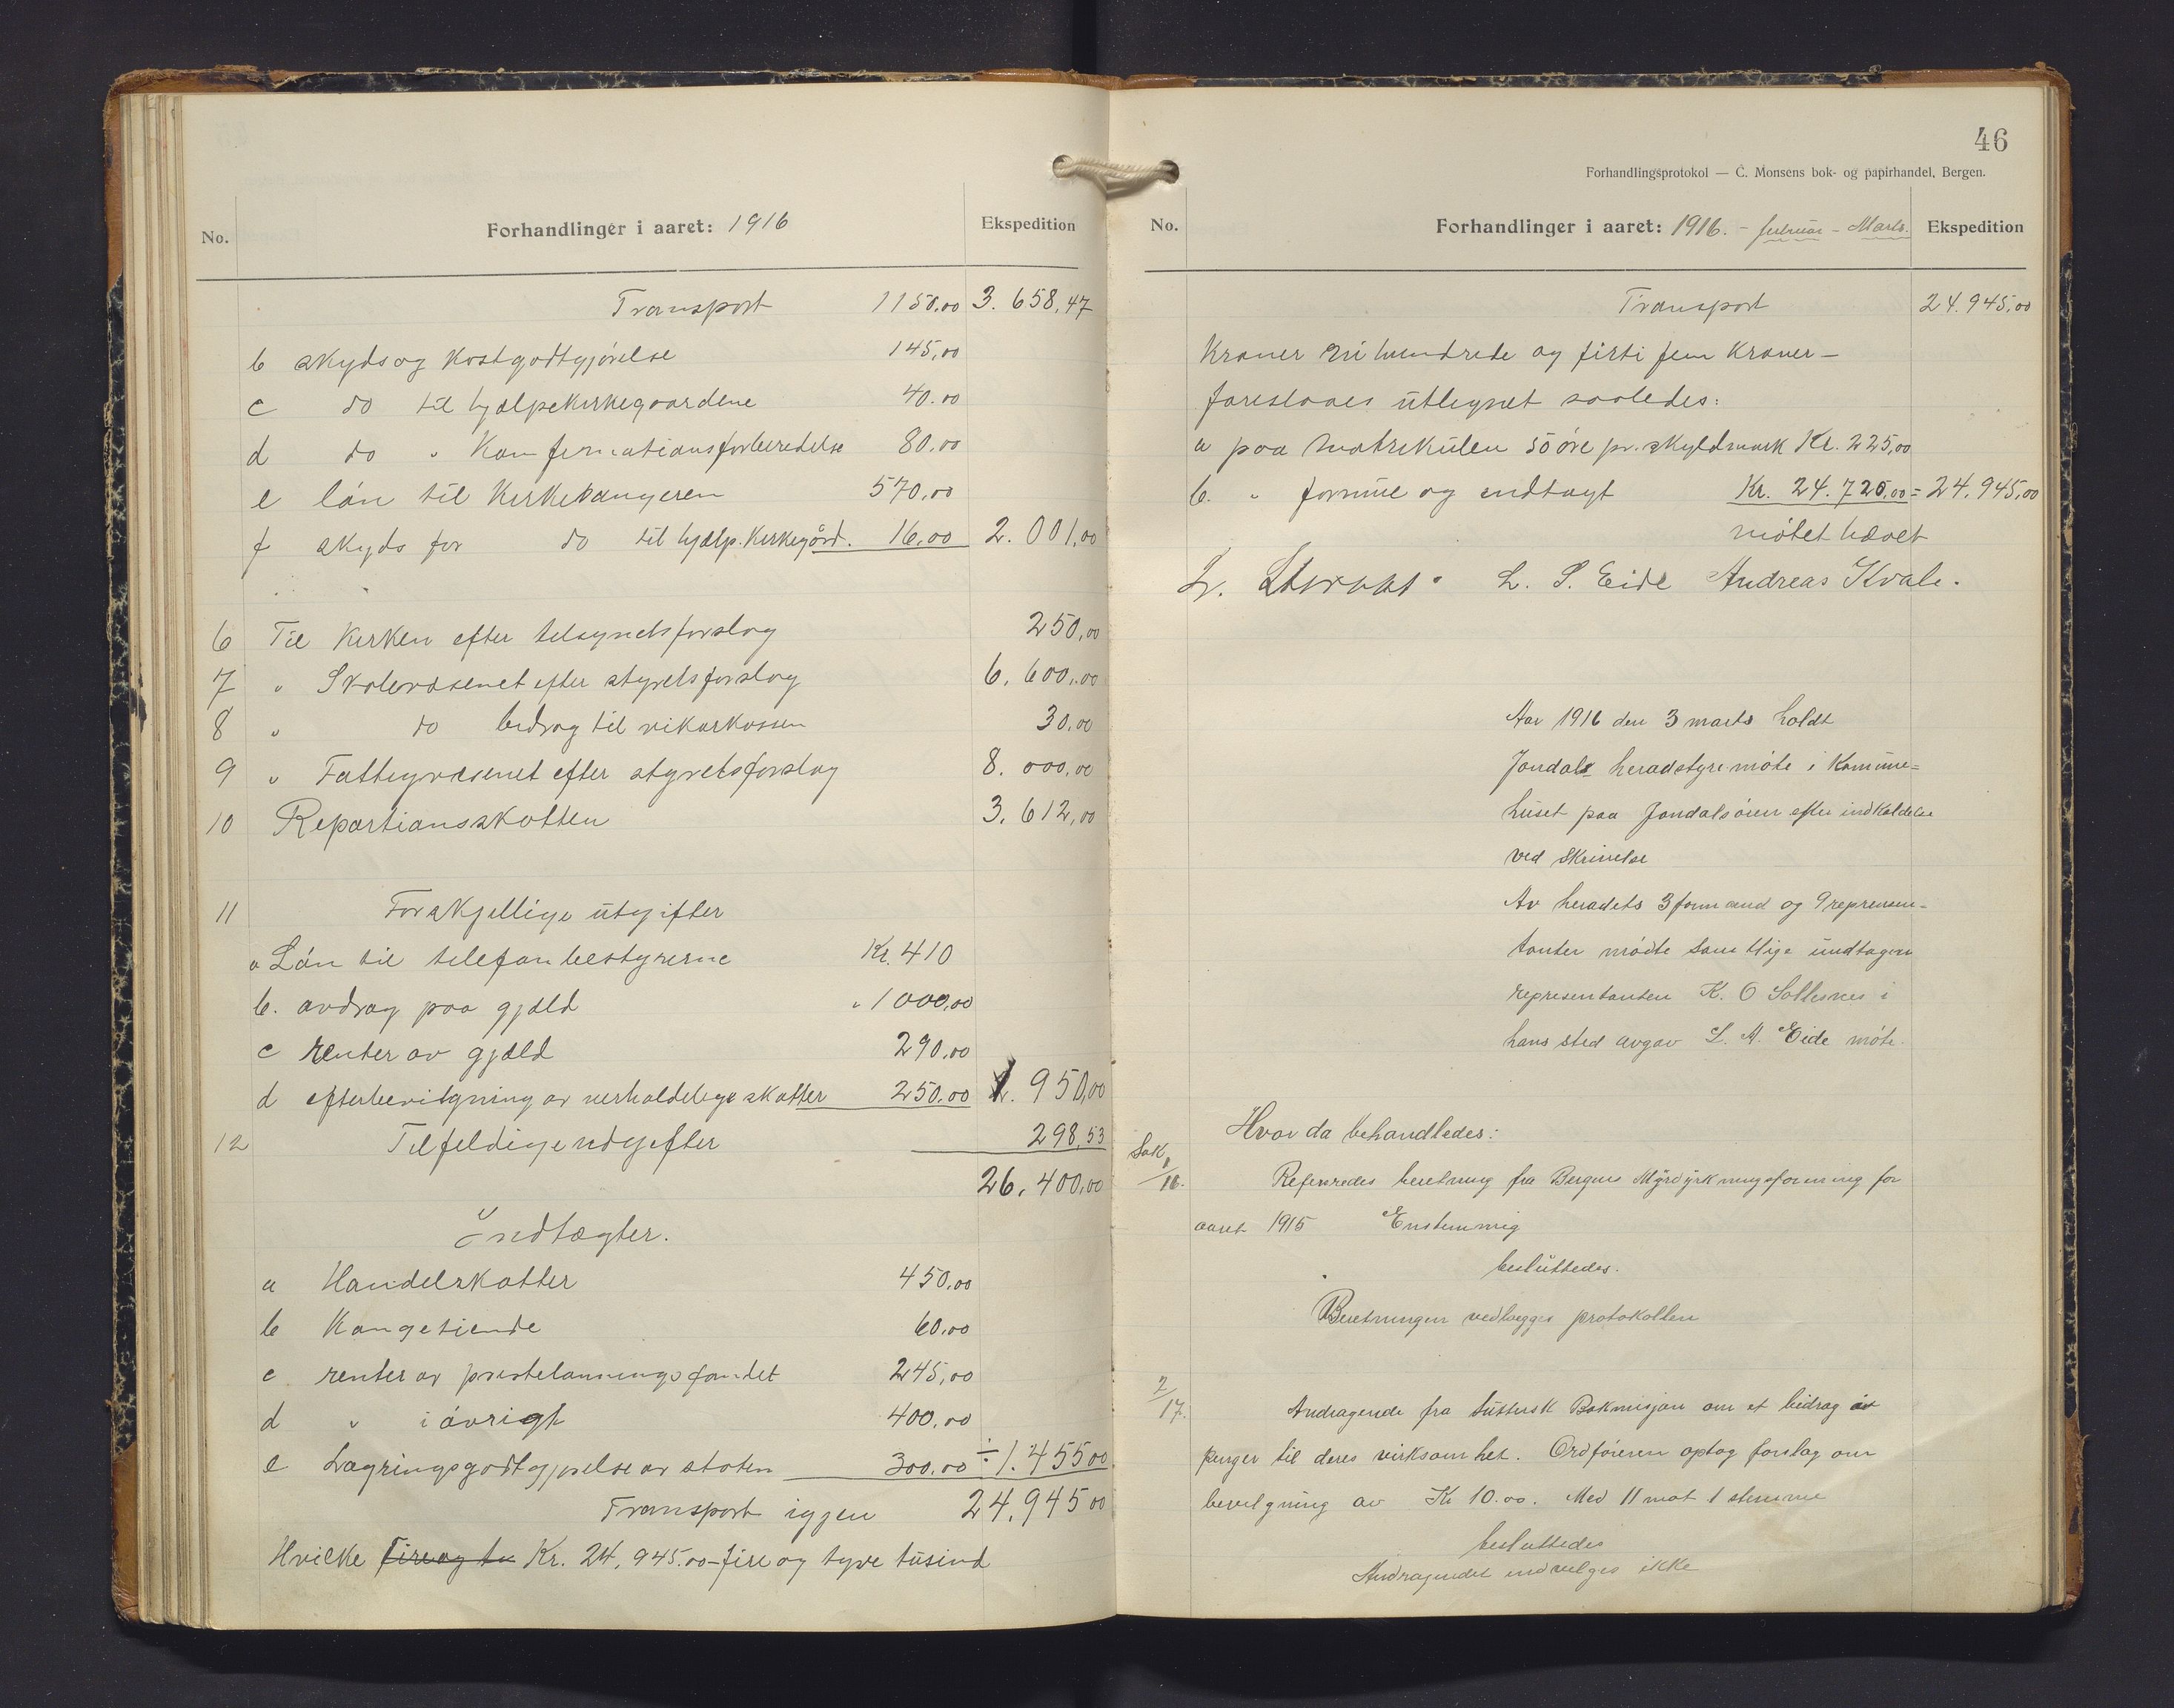 No. Forhandlinger i aaret: 1916 Ekspedition
Transport 1150,00 3.658,47
b skyds og Kostgodtgjörelse 145,00
c do til hjælpekirkegaardene 40.00
d do " Konfirmationsforberedelse 80.00
e lön til Kirkesangeren 570,00
f skyds for do til hjælp.Kirkegård. 16.00 2.001,00
6 Til Kirken efter tilsynets forslag 250,00
7 " Skolevæsenet efter styrets forslag 6.600,00
8 " do bidrag til vikarkassen 30,00
9 " Fattigvæsenet efter styrets forslag 8.000,00
10 Repartionsskatten 3.612,00
11 Forskjellige utgifter
a Lön til telefonbestyrerne Kr. 410
b. avdrag paa gjæld " 1000,00
c renter av gjæld 290,00
d efterbevilgning av uerholdelige skatter 250.00 1.950,00
12 Tilfeldige udgifter 298,53
26.400,00
Indtægter.
a Handelskatter 450,00
b Kongetiende 60,00
c renter av prestelønningsfondet 245,00
d " i övrigt 400,00
e Lægringsgodtgjørelse av staten 300.00 ÷ 1.45500
Transport igjen 24,94500
Hvilke fire og ty Kr. 24,945.00 - fire og tyve tusind
46
Forhandlingsprotokol — C. Monsens bok- og papirhandel, Bergen.
No. Forhandlinger i aaret: 1916. - februar - Marts. Ekspedition
Transport 24.945,00
Kroner ni hundrede og firti fem Kroner -
foreslaaes utlignet saaledes:
a paa Matrikulen 50 öre pr. skyldmark Kr. 225,00
b. " formue og indtægt Kr. 24.720,00 = 24.945,00
mötet hævet
L. S. Eide Andreas Kvale.
Aar 1916 den 3 marts holdt
Jondals heradstyre möte i Kommune=
huset paa Jondalsören efter indkaldelse
ved skrivelse
Av heradets 3 formænd og 9 repræsen-
tanter mödte samtlige undtagen
representanten K. O Sollesnes i
hans sted avgav L. A. Eide möte.
Hvor da behandledes:
Sak 1/16. Refereredes beretning fra Bergens Myrdyrkningsforening for
aaret 1915 Enstemmig
besluttedes.
Beretningen vedlægges protokollen
2/17. Andragende fra Luthersk Bokmisjon om et bidrag av
penger til deres virksomhet. Ordföreren optog forslag om
bevilgning av Kr 10.00. Med 11 mot 1 stemme
besluttedes
Andragendet indvilges ikke